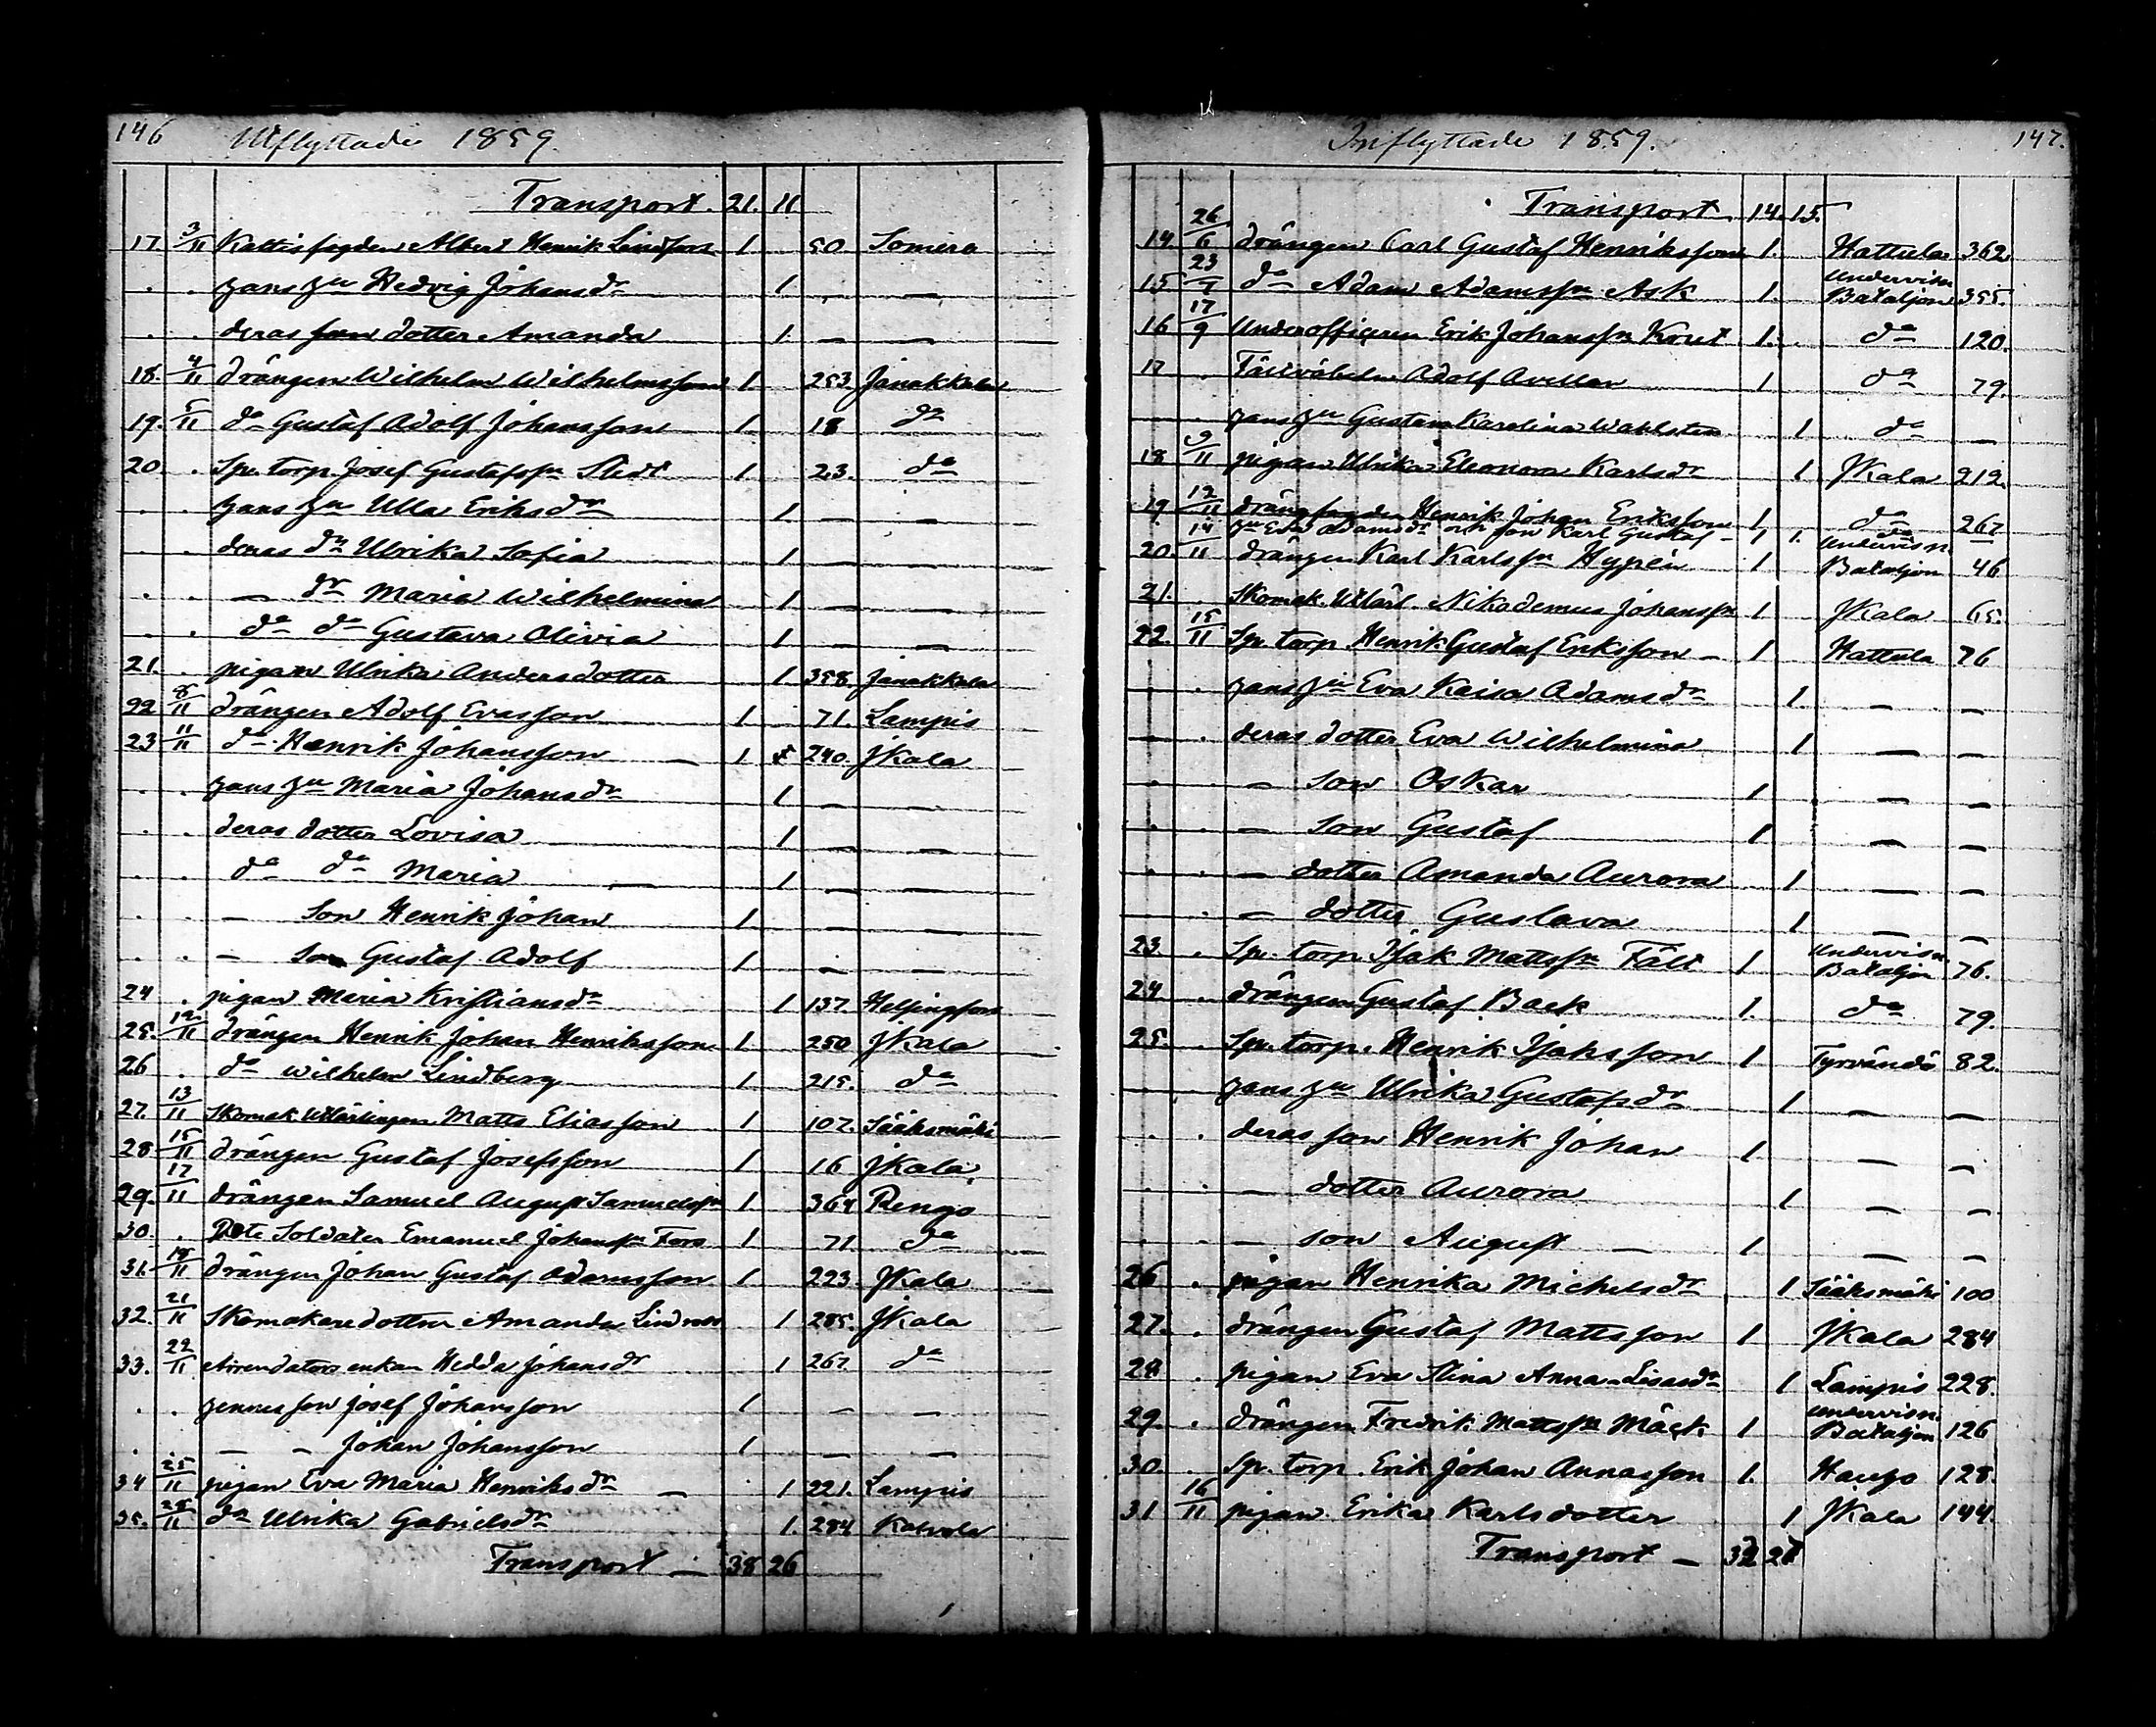 146 Utflyttade 1859.
Transport. 21. 11
17. 3/11 Rättisfogden Albert Henrik Lindfors 1 50. Somero
. . hans hu Hedvig Johansdr 1 — —
. . deras son dotter Amanda 1. — —
18. 4/11 drängen Wilhelm Wilhelmsson 1 253. Janakkala
19. 5/11 do Gustaf Adolf Johansson 1. 18 do
20. . Spr. torp. Josef Gustafsson Stedt 1. 23. do
. . hans hu Ulla Eriksdr 1. — —
. . deras dr Ulrika Sofia 1 — —
. . — dr Maria Wilhelmina 1 — —
. . do do Gustava Olivia 1 — —
21. . pigan Ulrika Andersdotter 1. 358. Janakkala
22 8/11 drängen Adolf Evasson 1 71. Lampis
23 11/11 do Henrik Johansson — 1 240. JKala
. . hans hu Maria Johansdr 1 — —
. . deras dotter Lovisa 1 — —
. . do do Maria — 1 — —
. . — son Henrik Johan 1. — —
. . — son Gustaf Adolf 1 — —
24 . pigan Maria Kristiansdr 1 137. Helsingfors
25. 12/11 drängen Henrik Johan Henriksson 1. 250 JKala
26 . do Wilhelm Lindberg 1 215. do
27. 13/11 Skomak. Utlärlingen Matts Eliasson 1 107. Sääksmäki
28 15/11 drängen Gustaf Josefsson 1 16 JKala
29. 17/11 drängen Samuel August Samuelsn 1. 364 Rengo
30. . Rote Soldaten Emanuel Johansn Fors 1. 71 do
31. 19/11 drängen Johan Gustaf Adamsson 1 223. JKala
32. 21/11 Skomakaredottern Amanda Lindroos 1 285. JKala
33. 22/11 Arrendators enkan Hedda Johansdr 1 267. do
. . hennes son Josef Johansson 1 — —
. — — Johan Johansson 1 — —
34 25/11 pigan Eva Maria Henriksdr — 1 221. Lampis
35. 28/11 do Ulrika Gabrielsdr 1. 284 Kalvola
Transport — 38 26
Inflyttade 1859. 147.
Transport 14. 15.
14. 26/6 drängen Carl Gustaf Henriksson 1. Hattula 362.
15 23/7 do Adam Adamsson Ask 1. Undervisn Bataljon 355.
16 17/9 Underofficeren Erik Johansson Krut 1. do 120.
17 . Fältväbeln Adolf Avellan 1 do 79.
hans hu Gustava Karolina Wahlsten 1 do —
18 9/11 pigan Ulrika Eleonora Karlsdr 1 JKala 212.
19 12/11 drängfogden Henrik Johan Eriksson 1 do 267
hu Eva Adamsdr och son Karl Gustaf — 1 1. do —
20. 14/11 drängen Karl Karlsson Hypén 1 Undervisn Bataljon 46
21. . Skomak. Utlärl. Nikodemus Johansson 1 JKala 65.
22. 15/11 Spr. torp. Henrik Gustaf Eriksson — 1 Hattula 76
. . hans hu Eva Kaisa Adamsdr 1 — —
. . deras dotter Eva Wilhelmina 1 — —
. . — son Oskar 1 — —
. . — son Gustaf 1 — —
. . — dotter Amanda Aurora 1 — —
. — dotter Gustava 1 — —
23. . Spr. torp. Isak Mattsson Fält 1 Undervisn Bataljon 76.
24 . drängen Gustaf Back 1. do 79.
25. . Spr. torp. Henrik Isaksson 1 Tyrvändö 82.
. hans hu Ulrika Gustafsdr 1 — —
. . deras son Henrik Johan 1. — —
. . — dotter Aurora 1 — —
. . — son August — 1 — —
26 . pigan Henrika Michelsdr 1 Sääksmäki 100
27. . drängen Gustaf Mattsson 1 JKala 284
28 . pigan Eva Stina Anna-Lisasdr 1 Lampis 228.
29. . drängen Fredrik Mattsson Mäck 1 Undervisn. Bataljon 126
30. . Spr. torp. Erik Johan Annasson 1. Haujo 128.
31 16/11 pigan Erika Karlsdotter 1 JKala 144.
Transport —